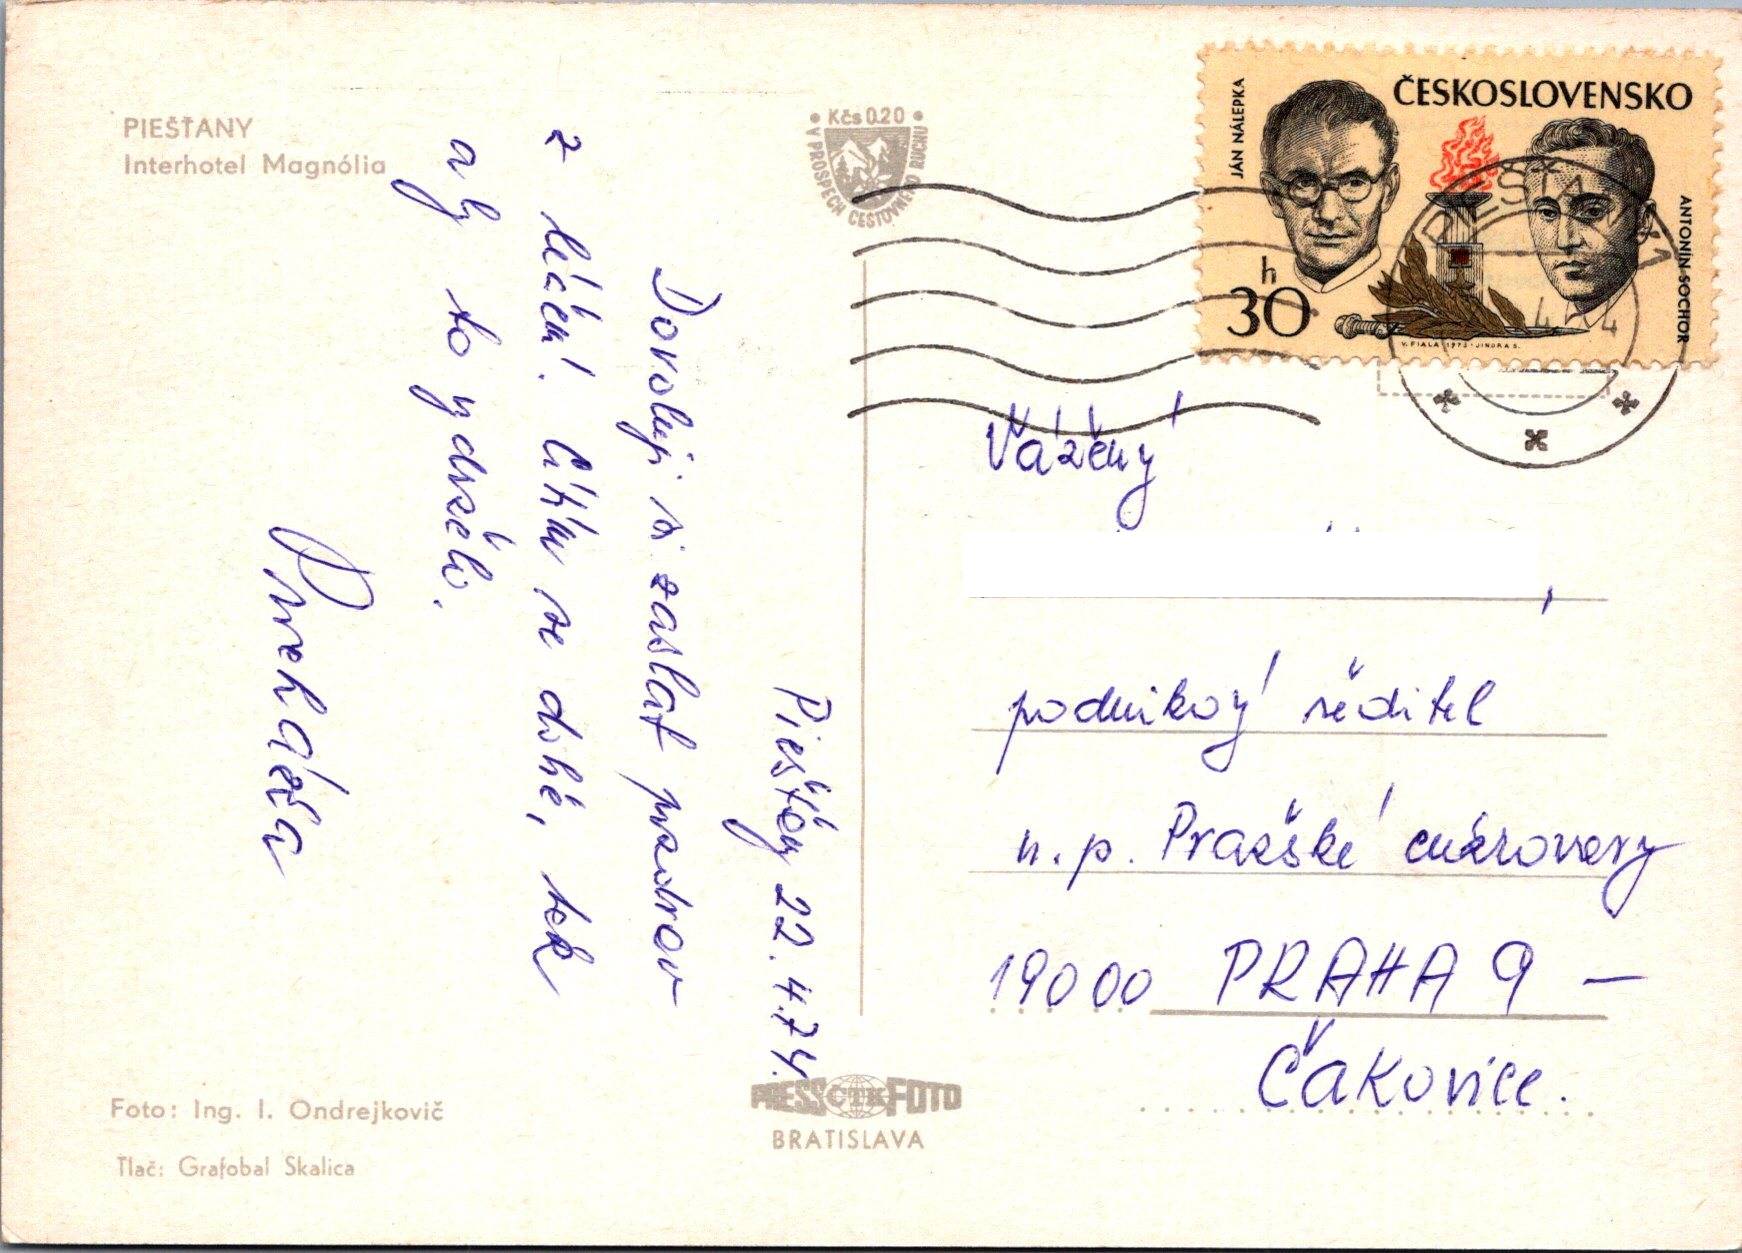 PIEŠŤANY
Interhotel Magnólia
• Kčs 0.20 •
V PROSPECH CESTOVNÉHO RUCHU
Piešťany 22. 4. 74.
Dovoluji si zaslat pozdrav
z léčení. Cítím se dobře, tak
aby to vydrželo.
JÁN NÁLEPKA
ČESKOSLOVENSKO
ANTONÍN SOCHOR
h
30
V. FIALA 1973 • JINDRA S.
Vážený
podnikový ředitel
n. p. Pražské cukrovary
190 00 PRAHA 9 —
Čakovice.
Foto: Ing. I. Ondrejkovič
Tlač: Grafobal Skalica
PRESS ČTK FOTO
BRATISLAVA